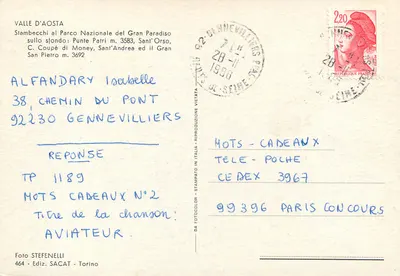 VALLE D'AOSTA
Stambecchi al Parco Nazionale del Gran Paradiso
sullo sfondo: Punte Patrì m. 3583, Sant'Orso,
C. Coupè di Money, Sant'Andrea ed il Gran
San Pietro m. 3692
ALFANDARY Isabelle
38, CHEMIN DU PONT
92230 GENNEVILLIERS
REPONSE
TP 1189
MOTS CADEAUX N°2
Titre de la chanson:
AVIATEUR.
Foto STEFENELLI
464 - Ediz. SACAT - Torino
STAMPATO IN ITALIA
92-GENNEVILLIERS PPAL
1986
2,20
MOTS - CADEAUX
TELE - POCHE
CEDEX 3967
99396 PARIS CONCOURS